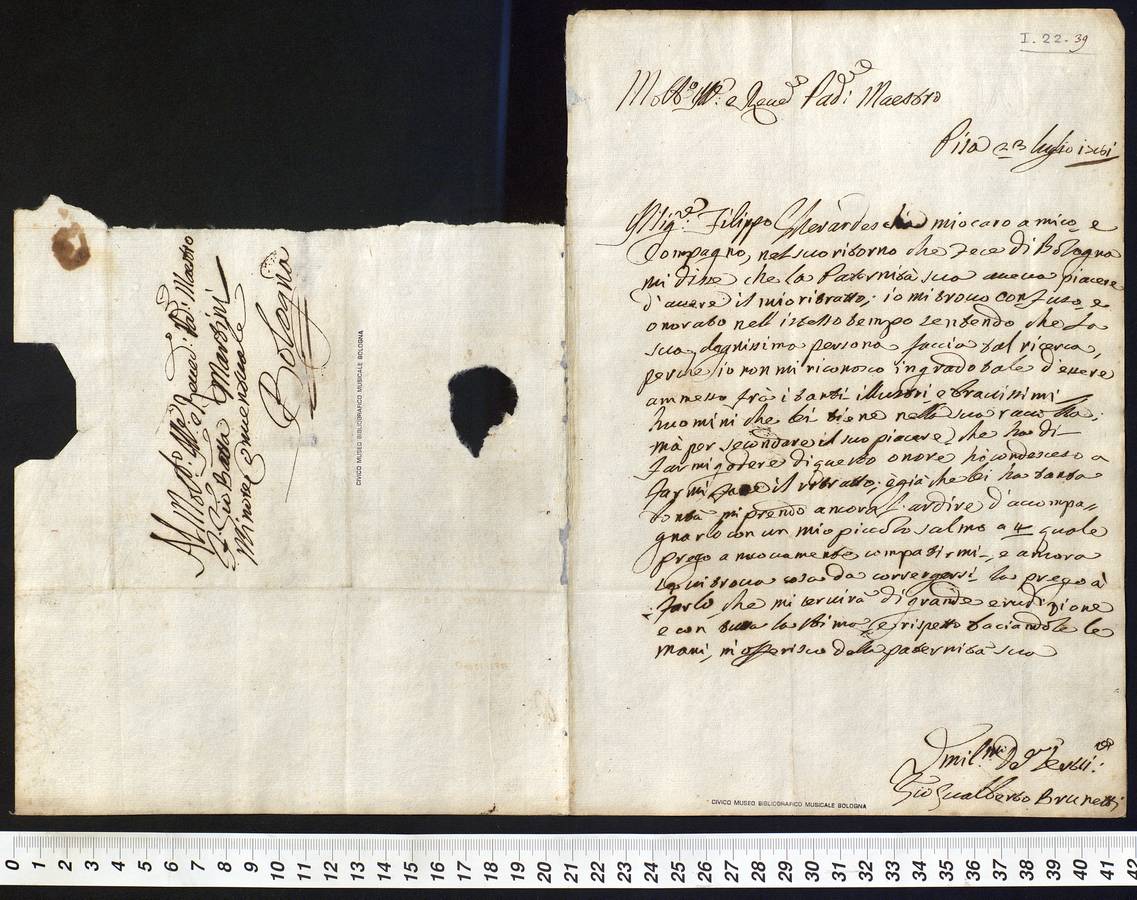 I. 22. 39
Molto Ill.e e Revd. Pad: Maestro
Pisa 23 luglio 1761
Il Sig.r Filippo Gherardeschi mio caro amico e
Compagno, nel suo ritorno che fece di Bologna
mi disse che la Paternità sua aveva piacere
d'avere il mio ritratto; io mi trovo confuso, e
onorato nell'istesso tempo sentendo che la
sua degnissima persona faccia tal ricerca,
perche io non mi riconosco in grado tale d'essere
ammesso frà i tanti illustri e bravissimi
huomini che lei tiene nella sua raccolta;
mà per secondare il suo piacere, che ha di
farmi godere di questo onore ho condesceso a
farmi fare il ritratto; e già che lei ha tanta
bontà mi prendo ancora l'ardire d'accompa=
gnarlo con un mio piccolo salmo a 4 quale
prego a nuovamente compatirmi, e ancora
se vi trova cosa da corregersi la prego à
farlo, che mi servirà di grande erudizione
e con tutta la stima, e rispetto baciandole le
mani, mi offerisco della paternità sua
Umil.mo Dev.mo Serv.re
Gio Gualberto Brunetti
Al Molto Ill.e e Revd: Pad: Maestro
Gio Batta Martini
Minore Conventuale
Bologna
CIVICO MUSEO BIBLIOGRAFICO MUSICALE BOLOGNA
CIVICO MUSEO BIBLIOGRAFICO MUSICALE BOLOGNA
0 1 2 3 4 5 6 7 8 9 10 11 12 13 14 15 16 17 18 19 20 21 22 23 24 25 26 27 28 29 30 31 32 33 34 35 36 37 38 39 40 41 42